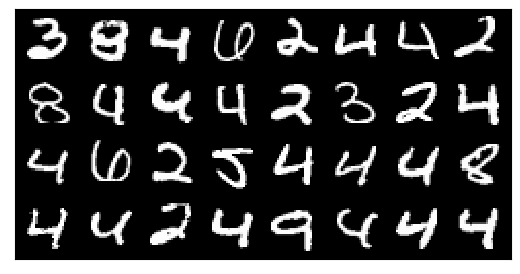 3 8 4 6 2 4 4 2
8 4 4 4 2 3 2 4
4 6 2 5 4 4 4 8
4 4 2 4 9 4 4 4